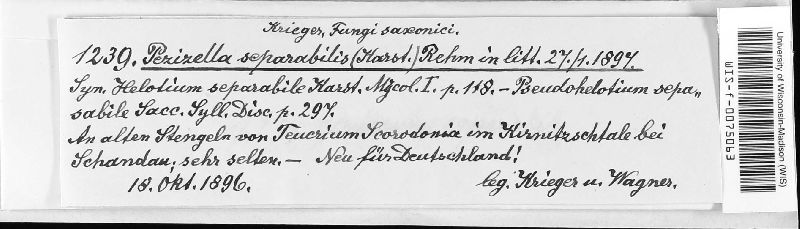 Krieger, Fungi saxonici.
1239. Pezizella separabilis (Karst.) Rehm in litt. 27./1. 1897.
Syn. Helotium separabile Karst. Mycol. I. p. 118. – Pseudohelotium sepa„
sabile Sacc. Syll. Disc. p. 297.
An alten Stengeln von Teucrium Scorodonia im Kirnitzschtale bei
Schandau; sehr selten. – Neu für Deutschland!
18. Okt. 1896. leg. Krieger u. Wagner.
University of Wisconsin-Madison (WIS)
WIS-f-0075063